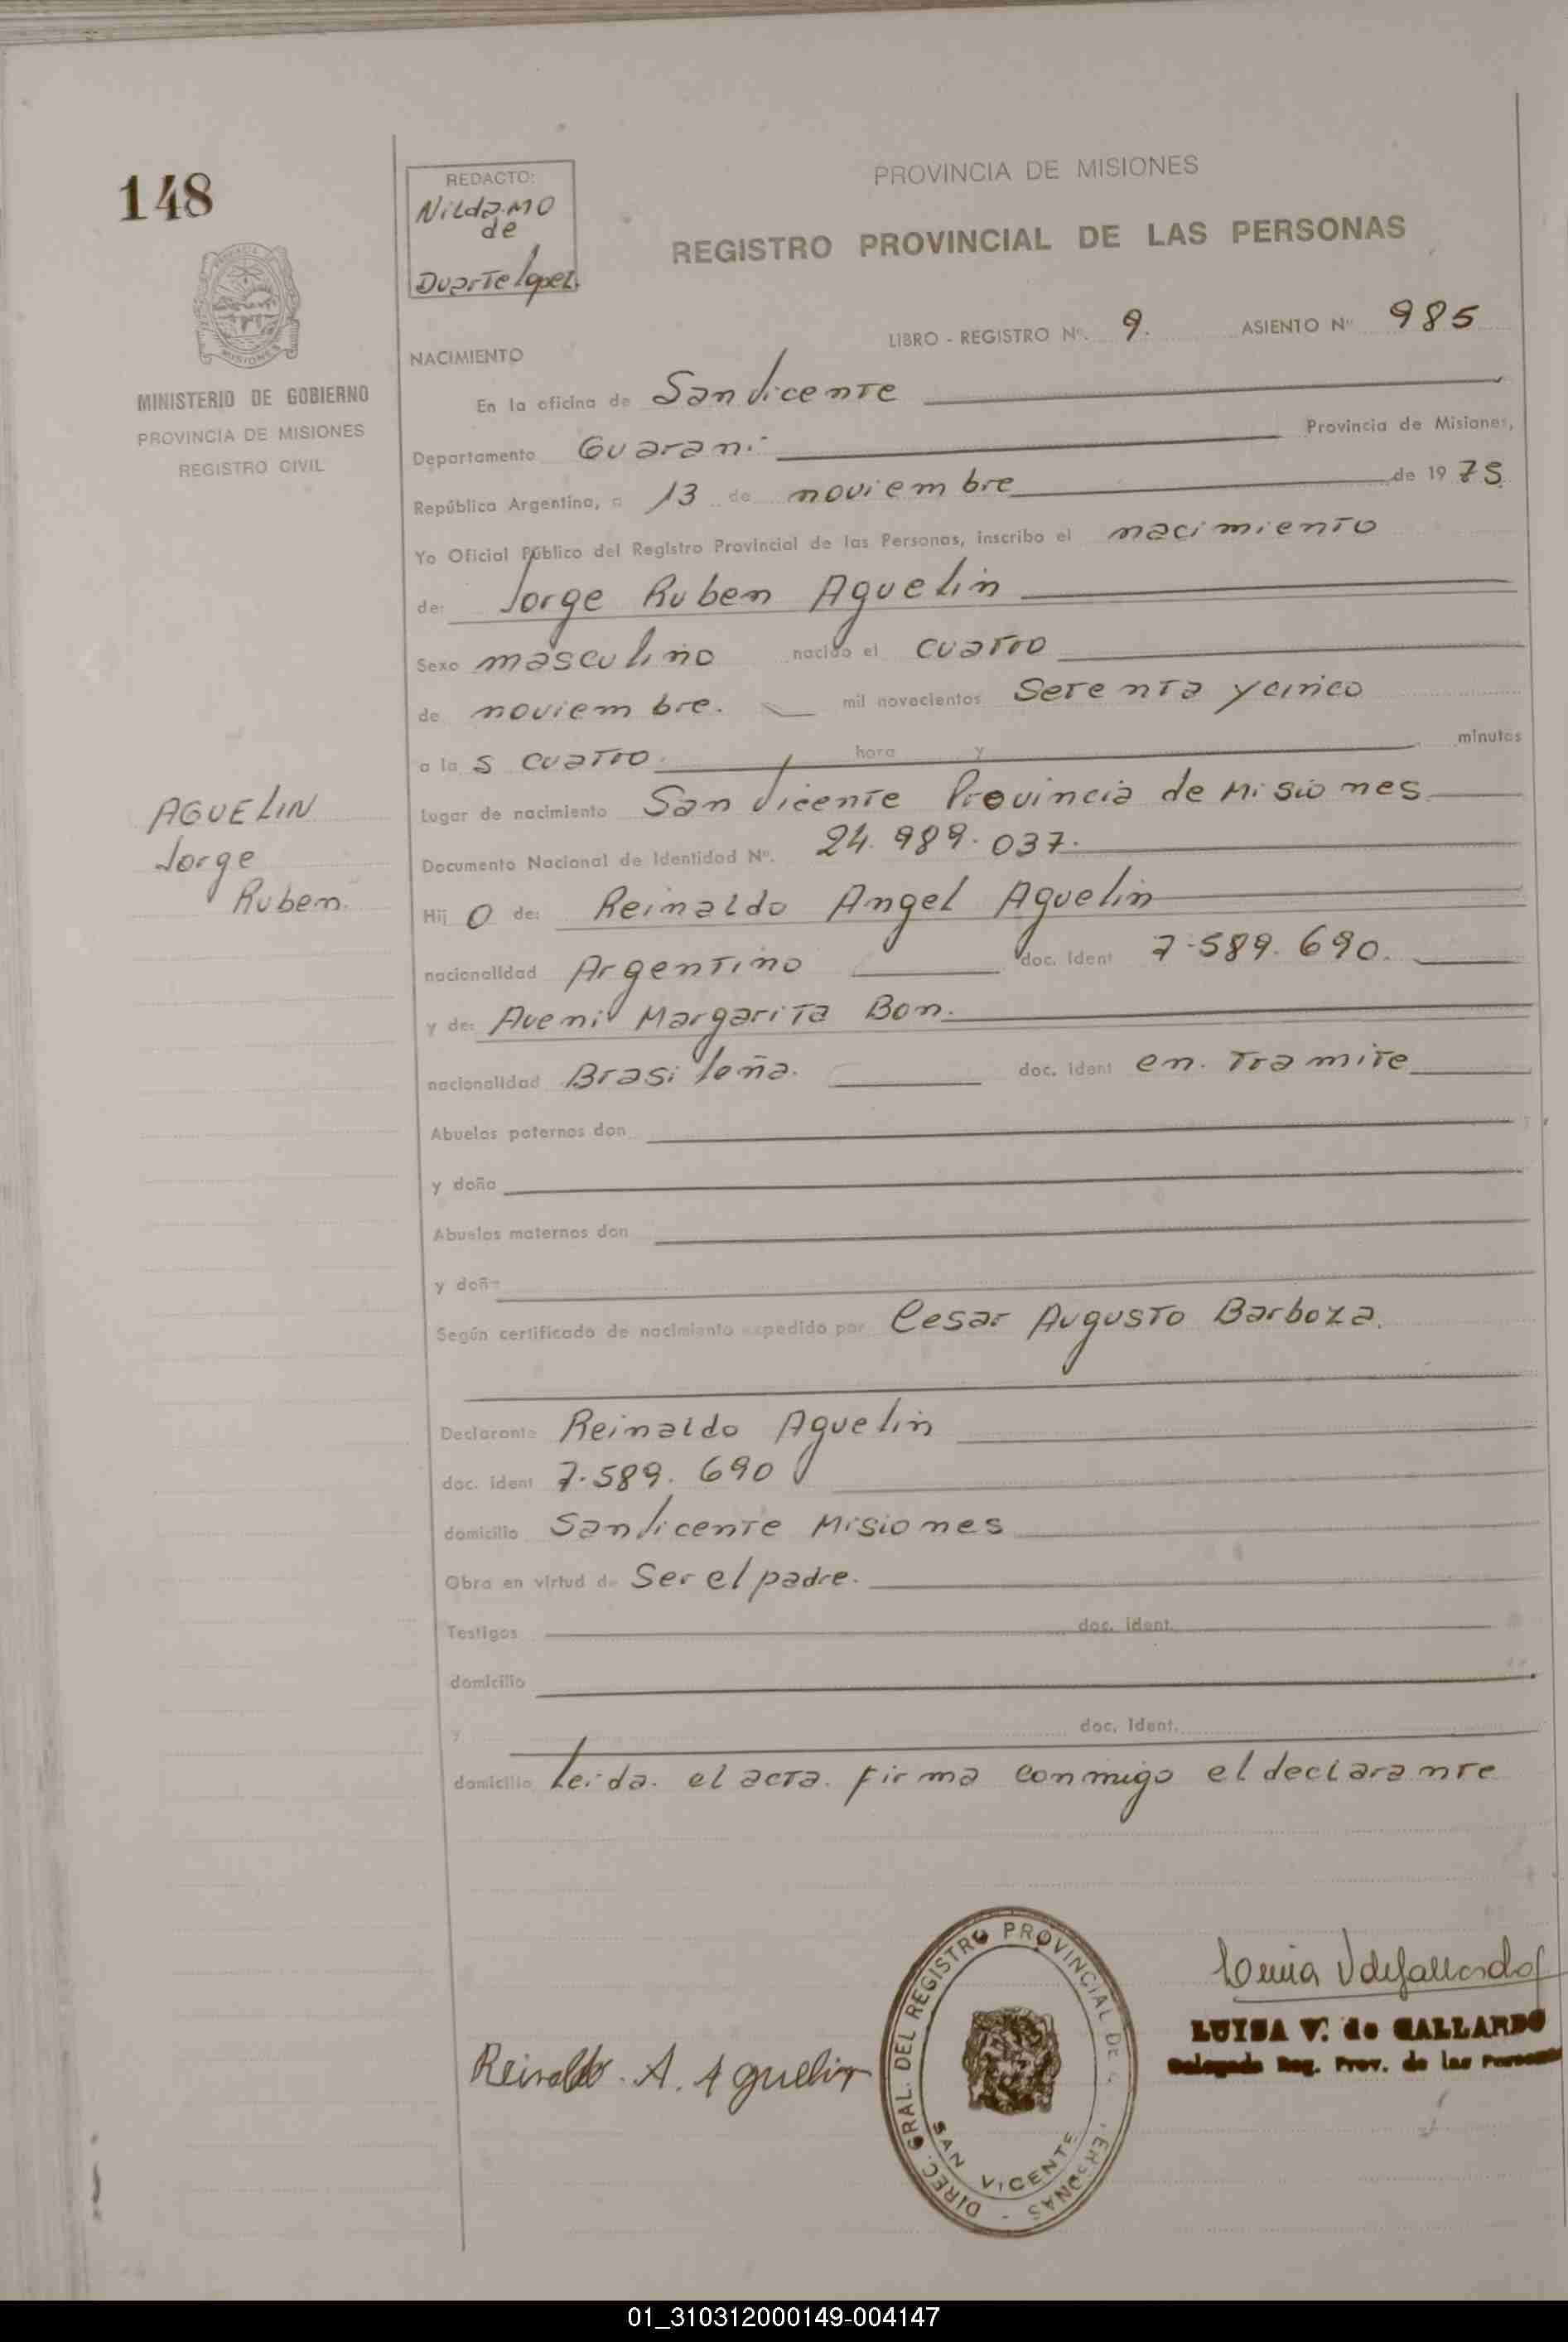 148
MINISTERIO DE GOBIERNO
PROVINCIA DE MISIONES
REGISTRO CIVIL
AGUELIN
Jorge
Ruben.
REDACTO:
Nilda.MO
de
Duarte lopez.
PROVINCIA DE MISIONES
REGISTRO PROVINCIAL DE LAS PERSONAS
LIBRO - REGISTRO Nº. 9. ASIENTO Nº 985
NACIMIENTO
En la oficina de San Vicente
Departamento Guarani Provincia de Misiones,
República Argentina, a 13 de noviembre de 1975
Yo Oficial Público del Registro Provincial de las Personas, inscribo el nacimiento
de: Jorge Ruben Aguelin
Sexo masculino nacido el cuatro
de noviembre. mil novecientos Setenta y cinco
a la s cuatro. hora y minutos
Lugar de nacimiento San Vicente Provincia de Misiones
Documento Nacional de Identidad Nº. 24.989.037.
Hij o de: Reinaldo Angel Aguelin
nacionalidad Argentino doc. Ident 7.589.690.
y de: Aveni Margarita Bon.
nacionalidad Brasileña. doc. Ident en. Tramite
Abuelos paternos don
y doña
Abuelos maternos don
y doña
Según certificado de nacimiento expedido por Cesar Augusto Barboza.
Declarante Reinaldo Aguelin
doc. ident 7.589.690
domicilio San Vicente Misiones
Obra en virtud de Ser el padre.
Testigos doc. ident.
domicilio
y doc. Ident.
domicilio Leida. el acta. firma conmigo el declarante
Reinaldo. A. Aguelin
DIREC. GRAL. DEL REGISTRO PROVINCIAL DE L PERSONAS -
SAN VICENTE
LUISA V. de GALLARDO
Delegada Reg. Prov. de las Personas
01_310312000149-004147